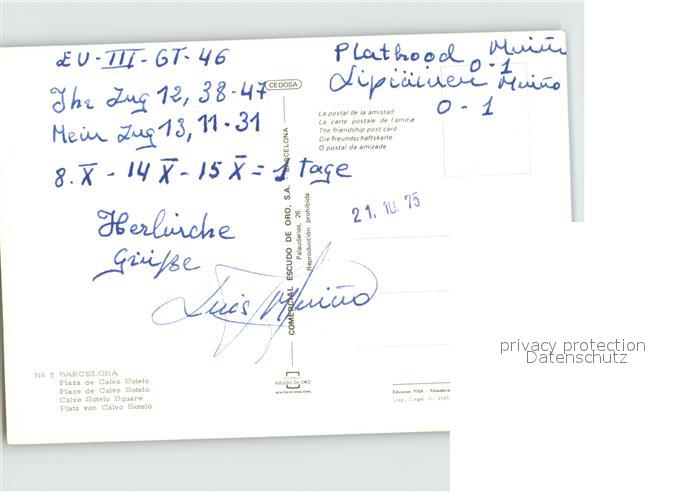 EU-III-GT-46
Ihr Zug 12, 38-47
Mein Zug 13, 11-31
8. X - 14 X - 15 X = 1 tage
Herliche
Grüße
Luis Muiño
Plathood Muiño
0-1
Lipiäinen Muiño
0-1
CEDOSA
La postal de la amistad
La carte postale de l'amitié
The friendship post card
Die Freundschaftskarte
O postal da amizade
21. 10. 75
COMERCIAL ESCUDO DE ORO, S.A. - BARCELONA
Palaudarias, 26
Reproducción prohibida
ESCUDO DE ORO
Nº 5 BARCELONA
Plaza de Calvo Sotelo
Place de Calvo Sotelo
Calvo Sotelo Square
Platz von Calvo Sotelo
Ediciones FISA - Palaudarias
Dep. Legal B.
privacy protection
Datenschutz